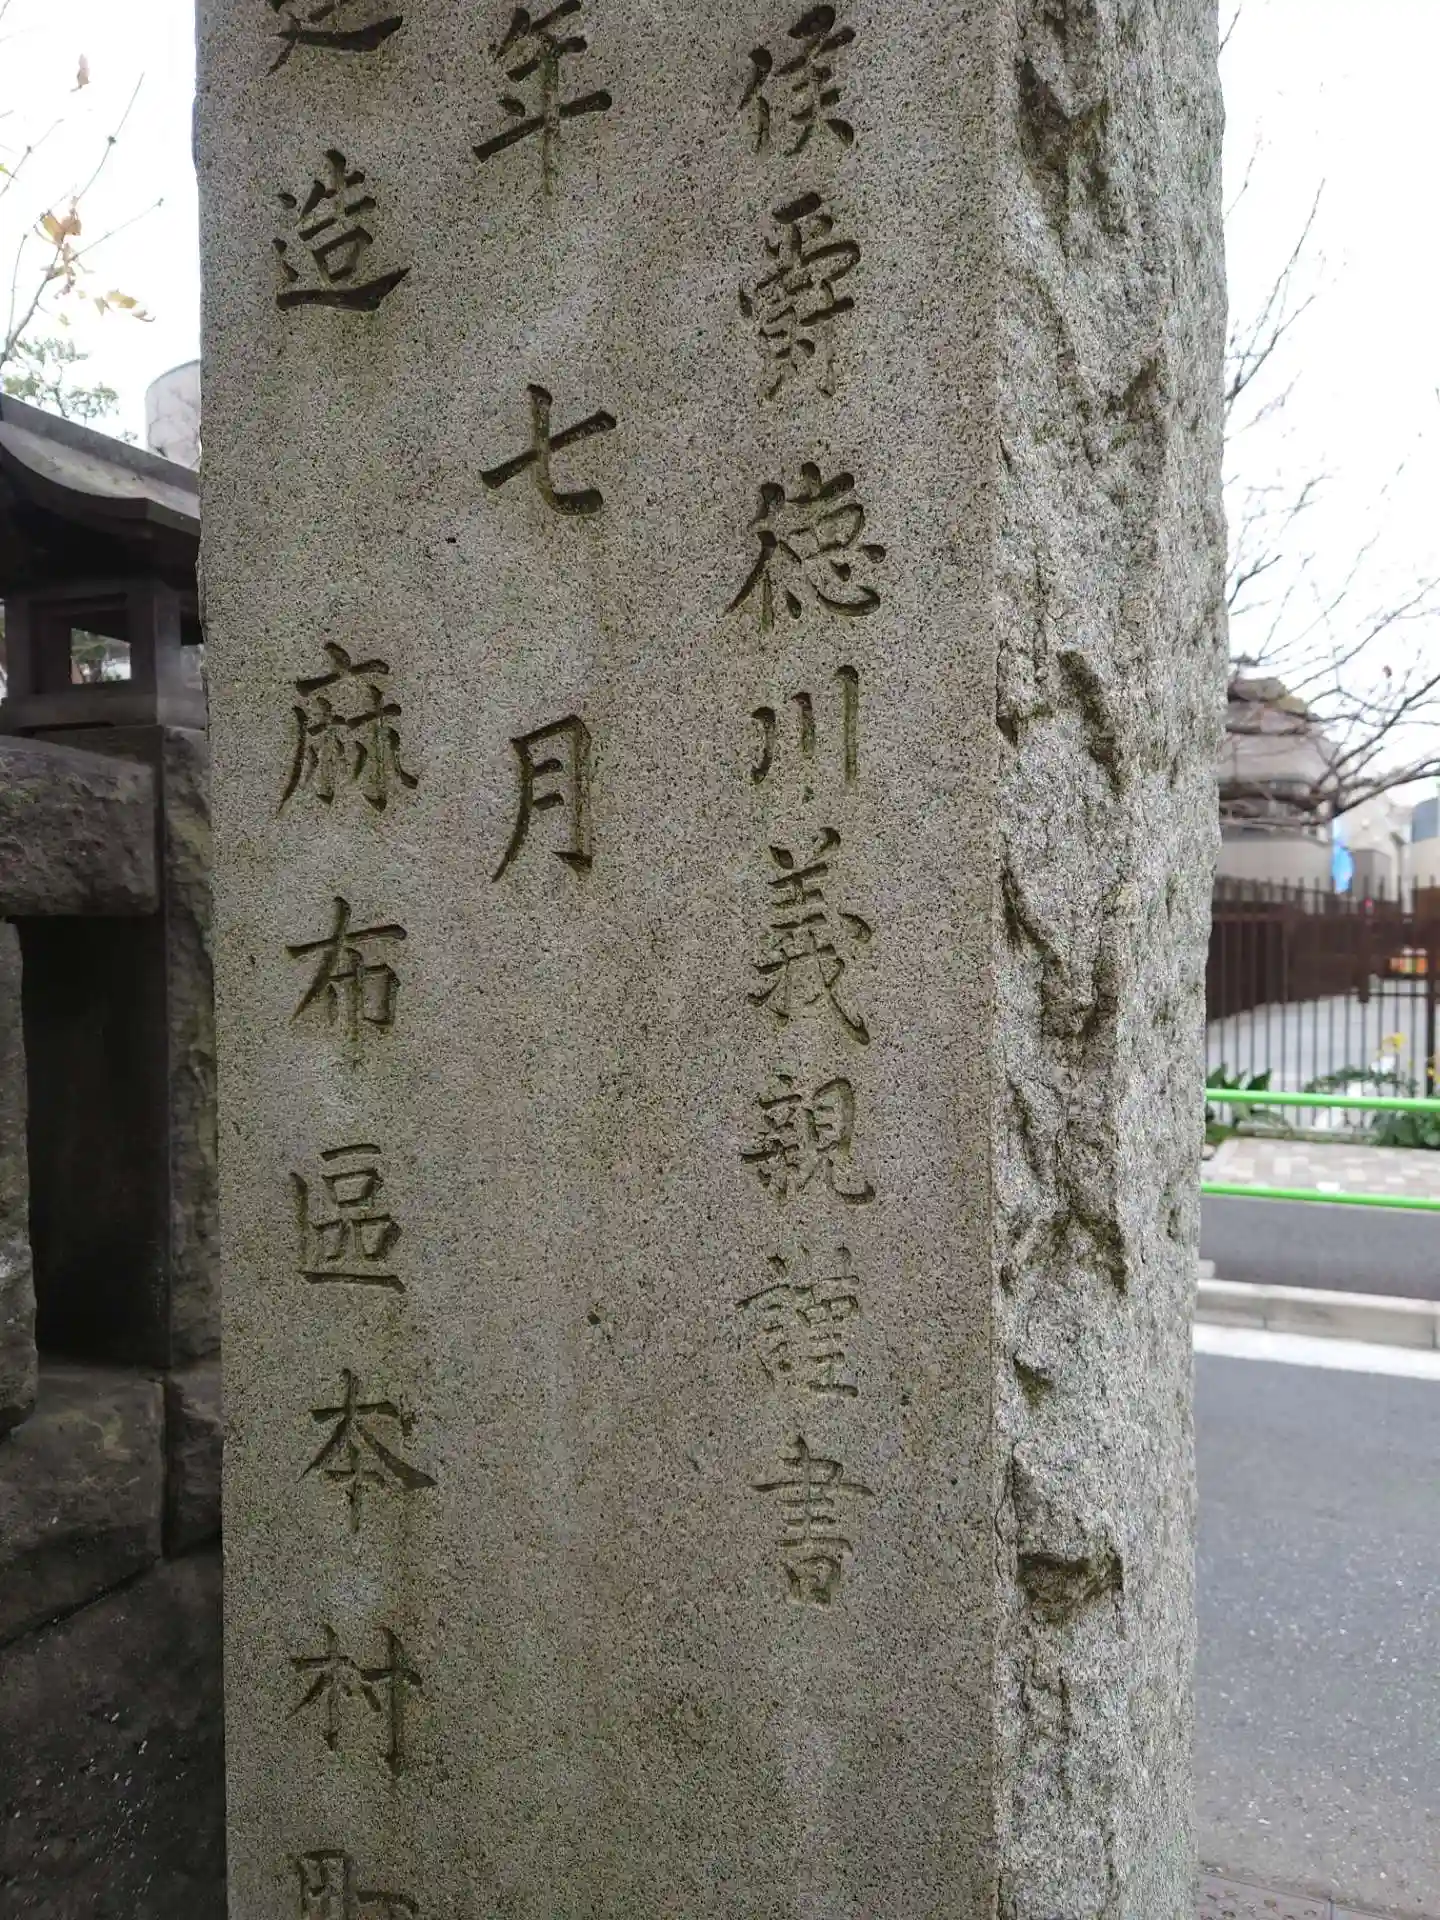 侯爵徳川義親謹書
年七月
建造 麻布區本村町